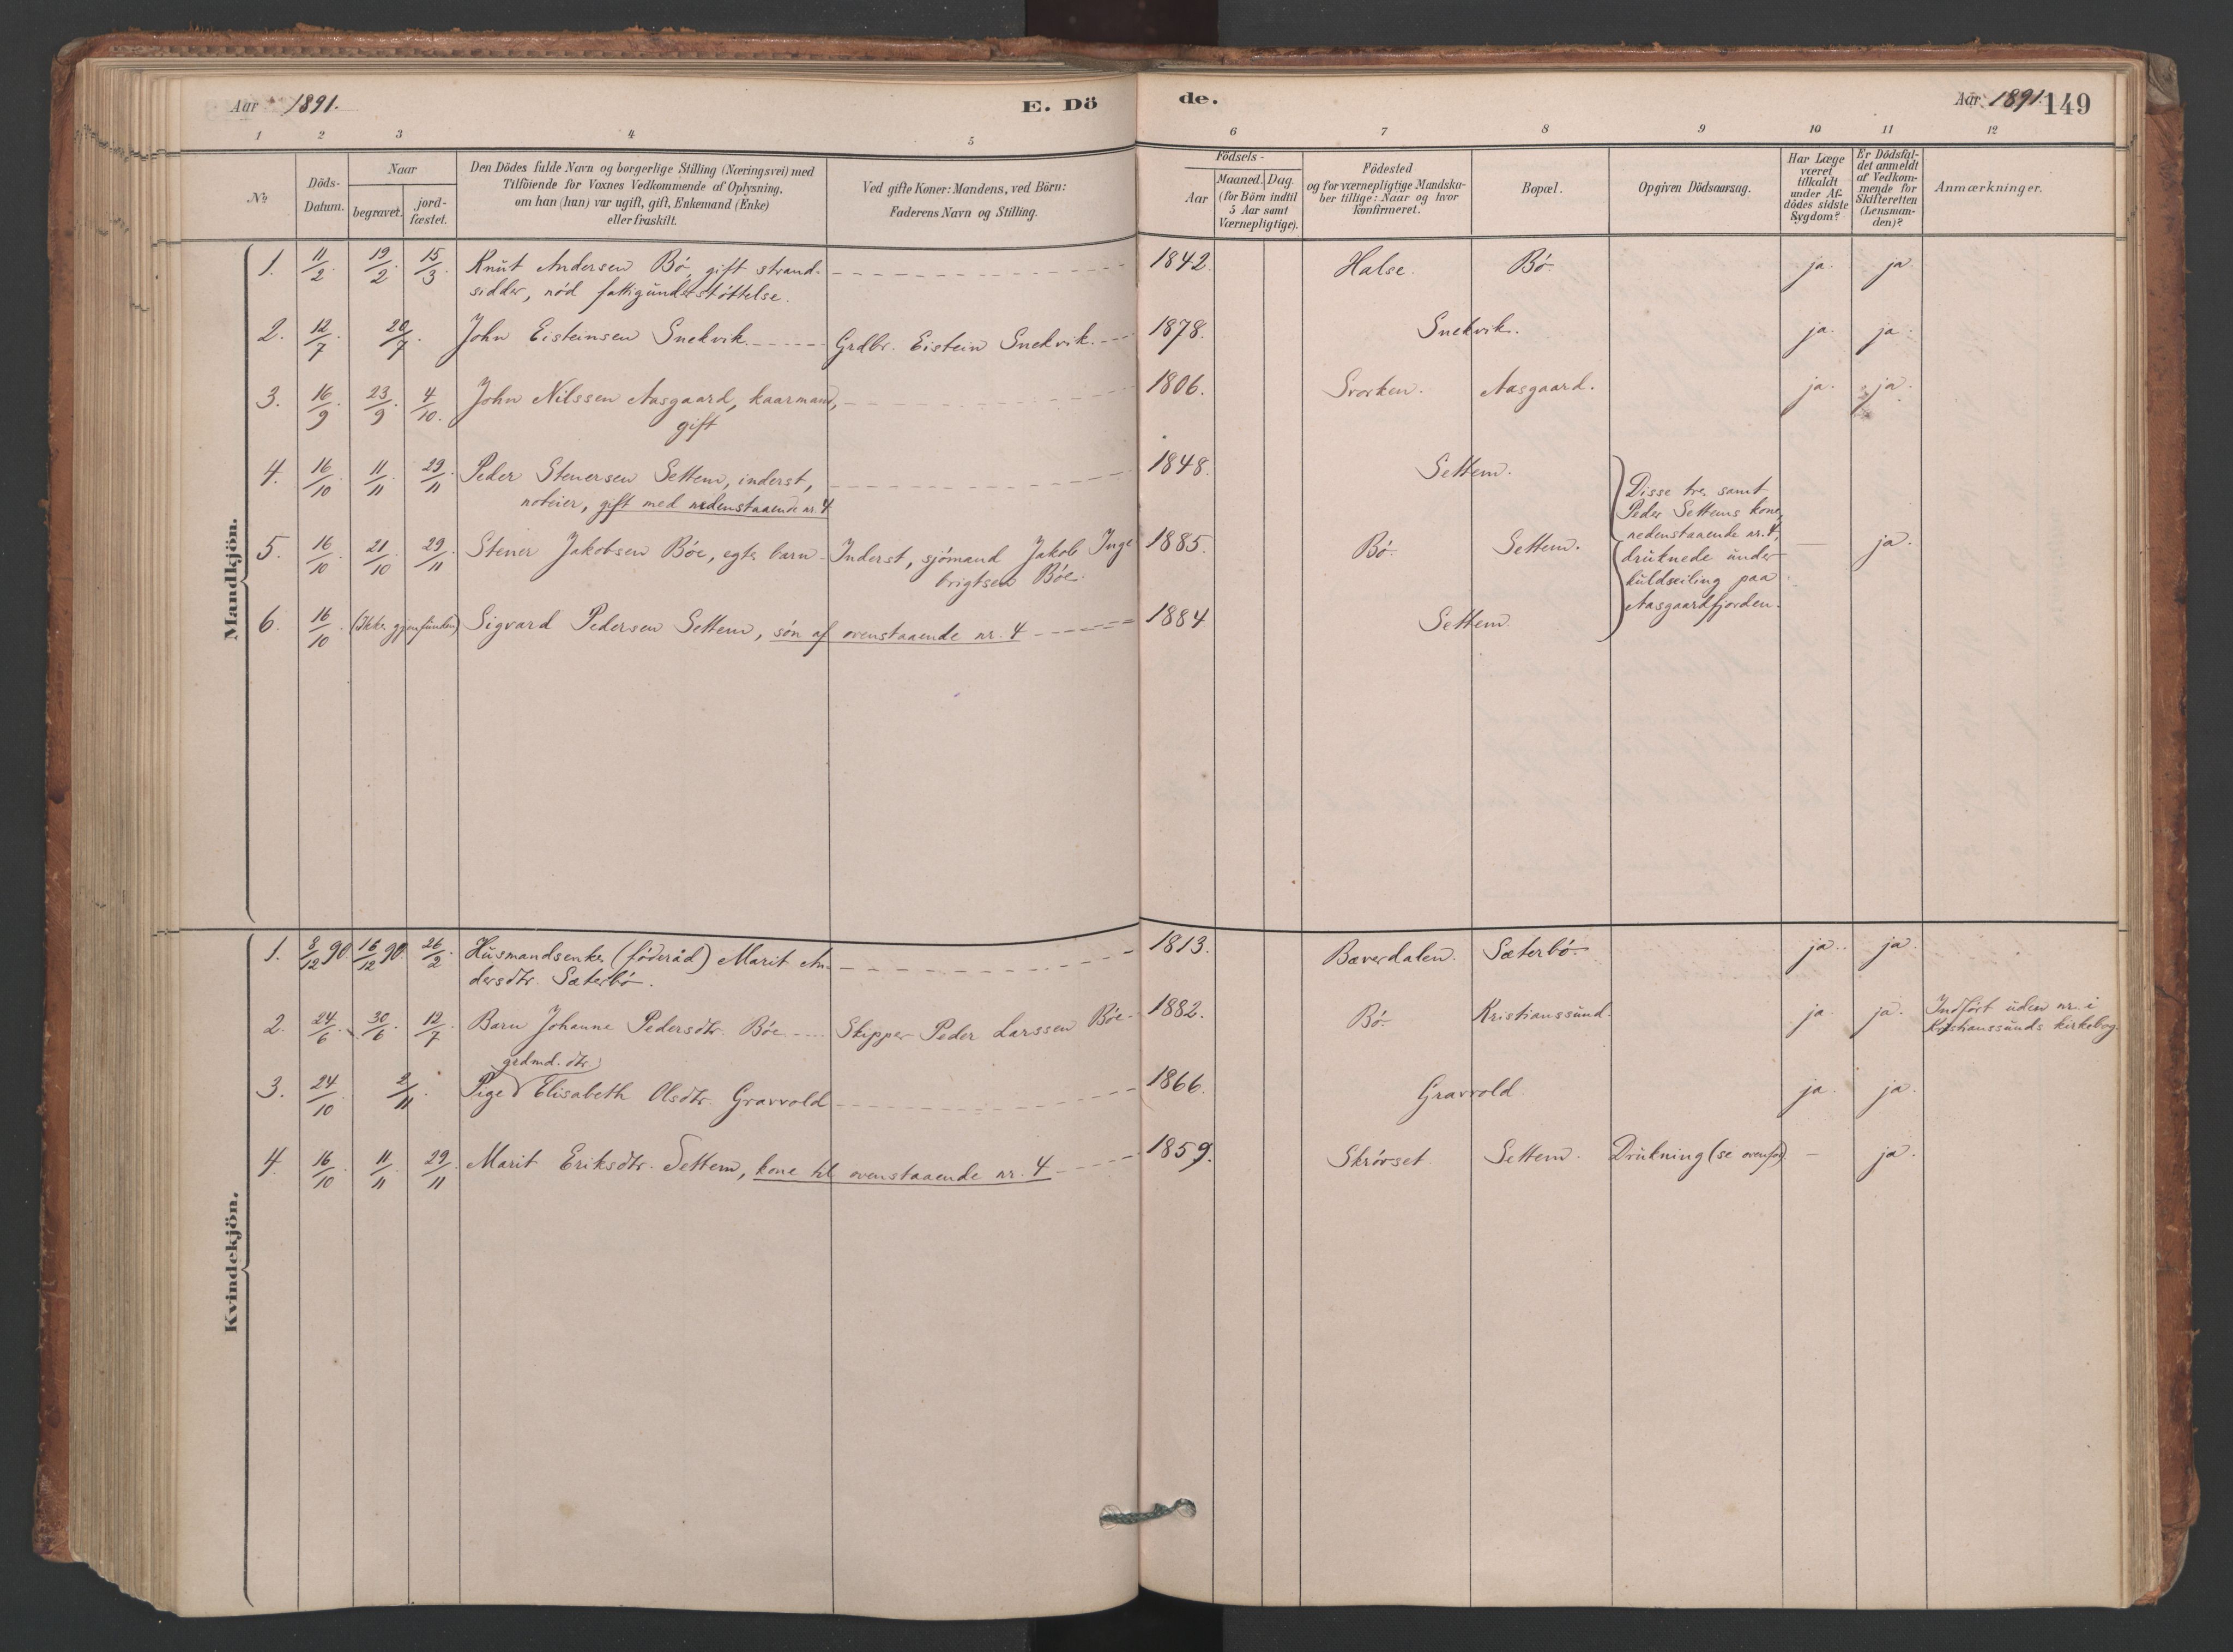 Aar 1891.
E. Dö
de.
Aar 1891.
149
1 2 3 4 5 6 7 8 9 10 11 12
No
Döds-Datum.
Naar
begravet.
jord-fæstet.
Den Dödes fulde Navn og borgerlige Stilling (Næringsvei) med
Tilföiende for Voxnes Vedkommende af Oplysning,
om han (hun) var ugift, gift, Enkemand (Enke)
eller fraskilt.
Ved gifte Koner: Mandens, ved Börn:
Faderens Navn og Stilling.
Födsels-
Aar
Maaned. Dag.
(for Börn indtil
5 Aar samt
Værnepligtige).
Födested
og for værnepligtige Mandska-
ber tillige: Naar og hvor
konfirmeret.
Bopæl.
Opgiven Dödsaarsag.
Har Læge
været
tilkaldt
under Af-
dödes sidste
Sygdom?
Er Dödsfal-
det anmeldt
af Vedkom-
mende for
Skifteretten
(Lensman-
den)?
Anmærkninger.
Mandkjön.
1. 11/2 19/2 15/3 Knut Andersen Bö, gift strand- 1842. Halse. Bö. ja. ja
sidder, nöd fattigunderstöttelse.
2. 12/7 20/7 John Eisteinsen Snekvik. Grdbr. Eistein Snekvik. 1878. Snekvik. ja. ja.
3. 16/9 23/9 4/10. John Nilssen Aasgaard, kaarmand, 1806. Svorken. Aasgaard. ja. ja.
gift
4. 16/10 11/11 29/11 Peder Stenersen Settem, inderst, 1848. Settem.
noteier, gift med nedenstaaende nr. 4
Disse tre, samt
Peder Settems kone,
nedenstaaende nr. 4,
druknede under
kuldseiling paa
Aasgaardfjorden.
5. 16/10 21/10 29/11 Stener Jakobsen Böe, egte barn Inderst, sjömand Jakob Inge 1885. Bö. Settem. — ja.
brigtsen Böe.
6. 16/10 (Ikke gjenfunden) Sigvard Pedersen Settem, sön af ovenstaaende nr. 4 1884 Settem.
Kvindekjön.
1. 8/12 90 16/12 90 26/2 Husmandsenke (föderåd) Marit An- 1813. Bæverdalen. Sæterbö. ja. ja.
dersdtr. Sæterbö.
2. 24/6 30/6 12/7 Barn Johanne Pedersdtr. Böe Skipper Peder Larssen Böe 1882. Bö. Kristianssund. ja. ja. Indfört uden nr. i
Kristianssunds kirkebog.
grdmd. dtr.
3. 24/10 2/11 Pige Elisabeth Olsdtr. Gravvold 1866. Gravvold. ja. ja.
4. 16/10 11/11 29/11 Marit Eriksdtr. Settem, kone til ovenstaaende nr. 4 1859. Skrövset Settem. Drukning (se ovenfor). — ja.